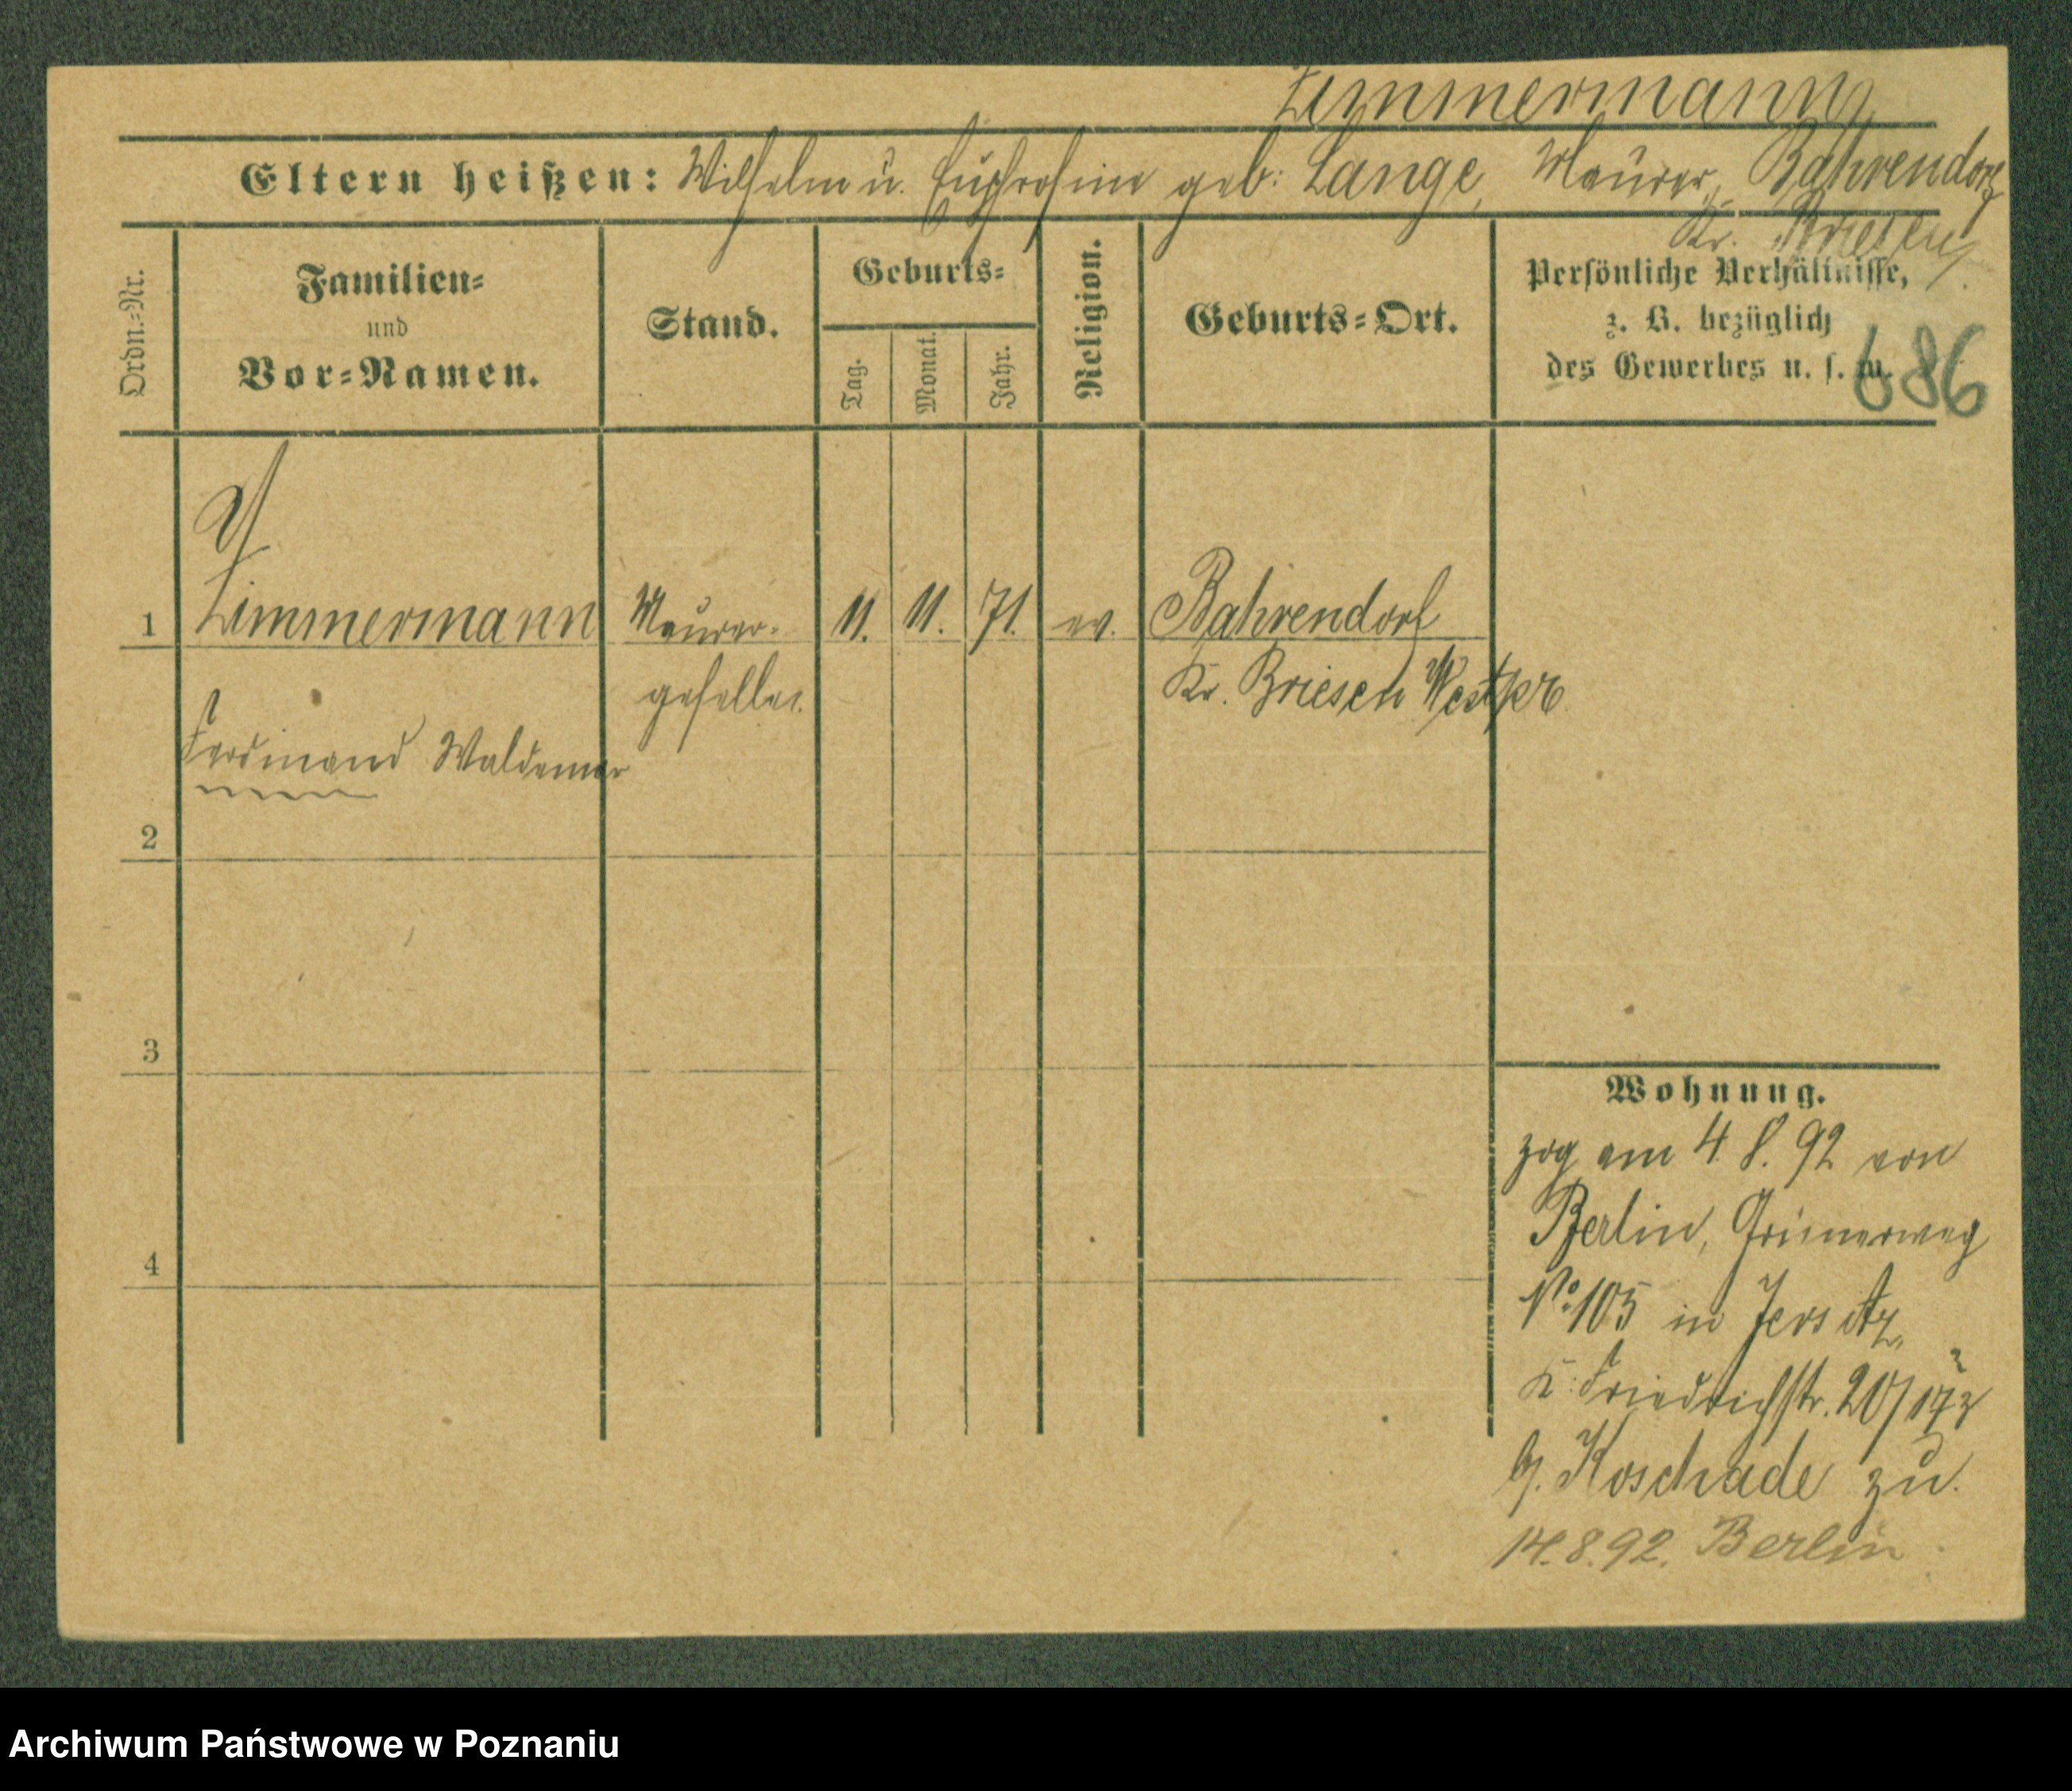 Zimmermann
Eltern heißen: Wilhelm u. Euphrosine geb: Lange, Maurer, Bahrendorf
Kr. Briesen
Ordn.=Nr.
Familien=
und
Vor=Namen.
Stand.
Geburts=
Tag.
Monat.
Jahr.
Religion.
Geburts=Ort.
Persönliche Verhältnisse,
z. B. bezüglich
des Gewerbes u. s. w.
686
1 Zimmermann Maurer- 11. 11. 71. ev. Bahrendorf
geselle. Kr. Briesen Westpr
Ferdinand Waldemar
2
3
4
Wohnung.
zog am 4. 8. 92 von
Berlin, Grünerweg
No 105 in Jersitz,
K. Friedrichstr. 20/
b/. Koschade zu.
14.8.92. Berlin
Archiwum Państwowe w Poznaniu